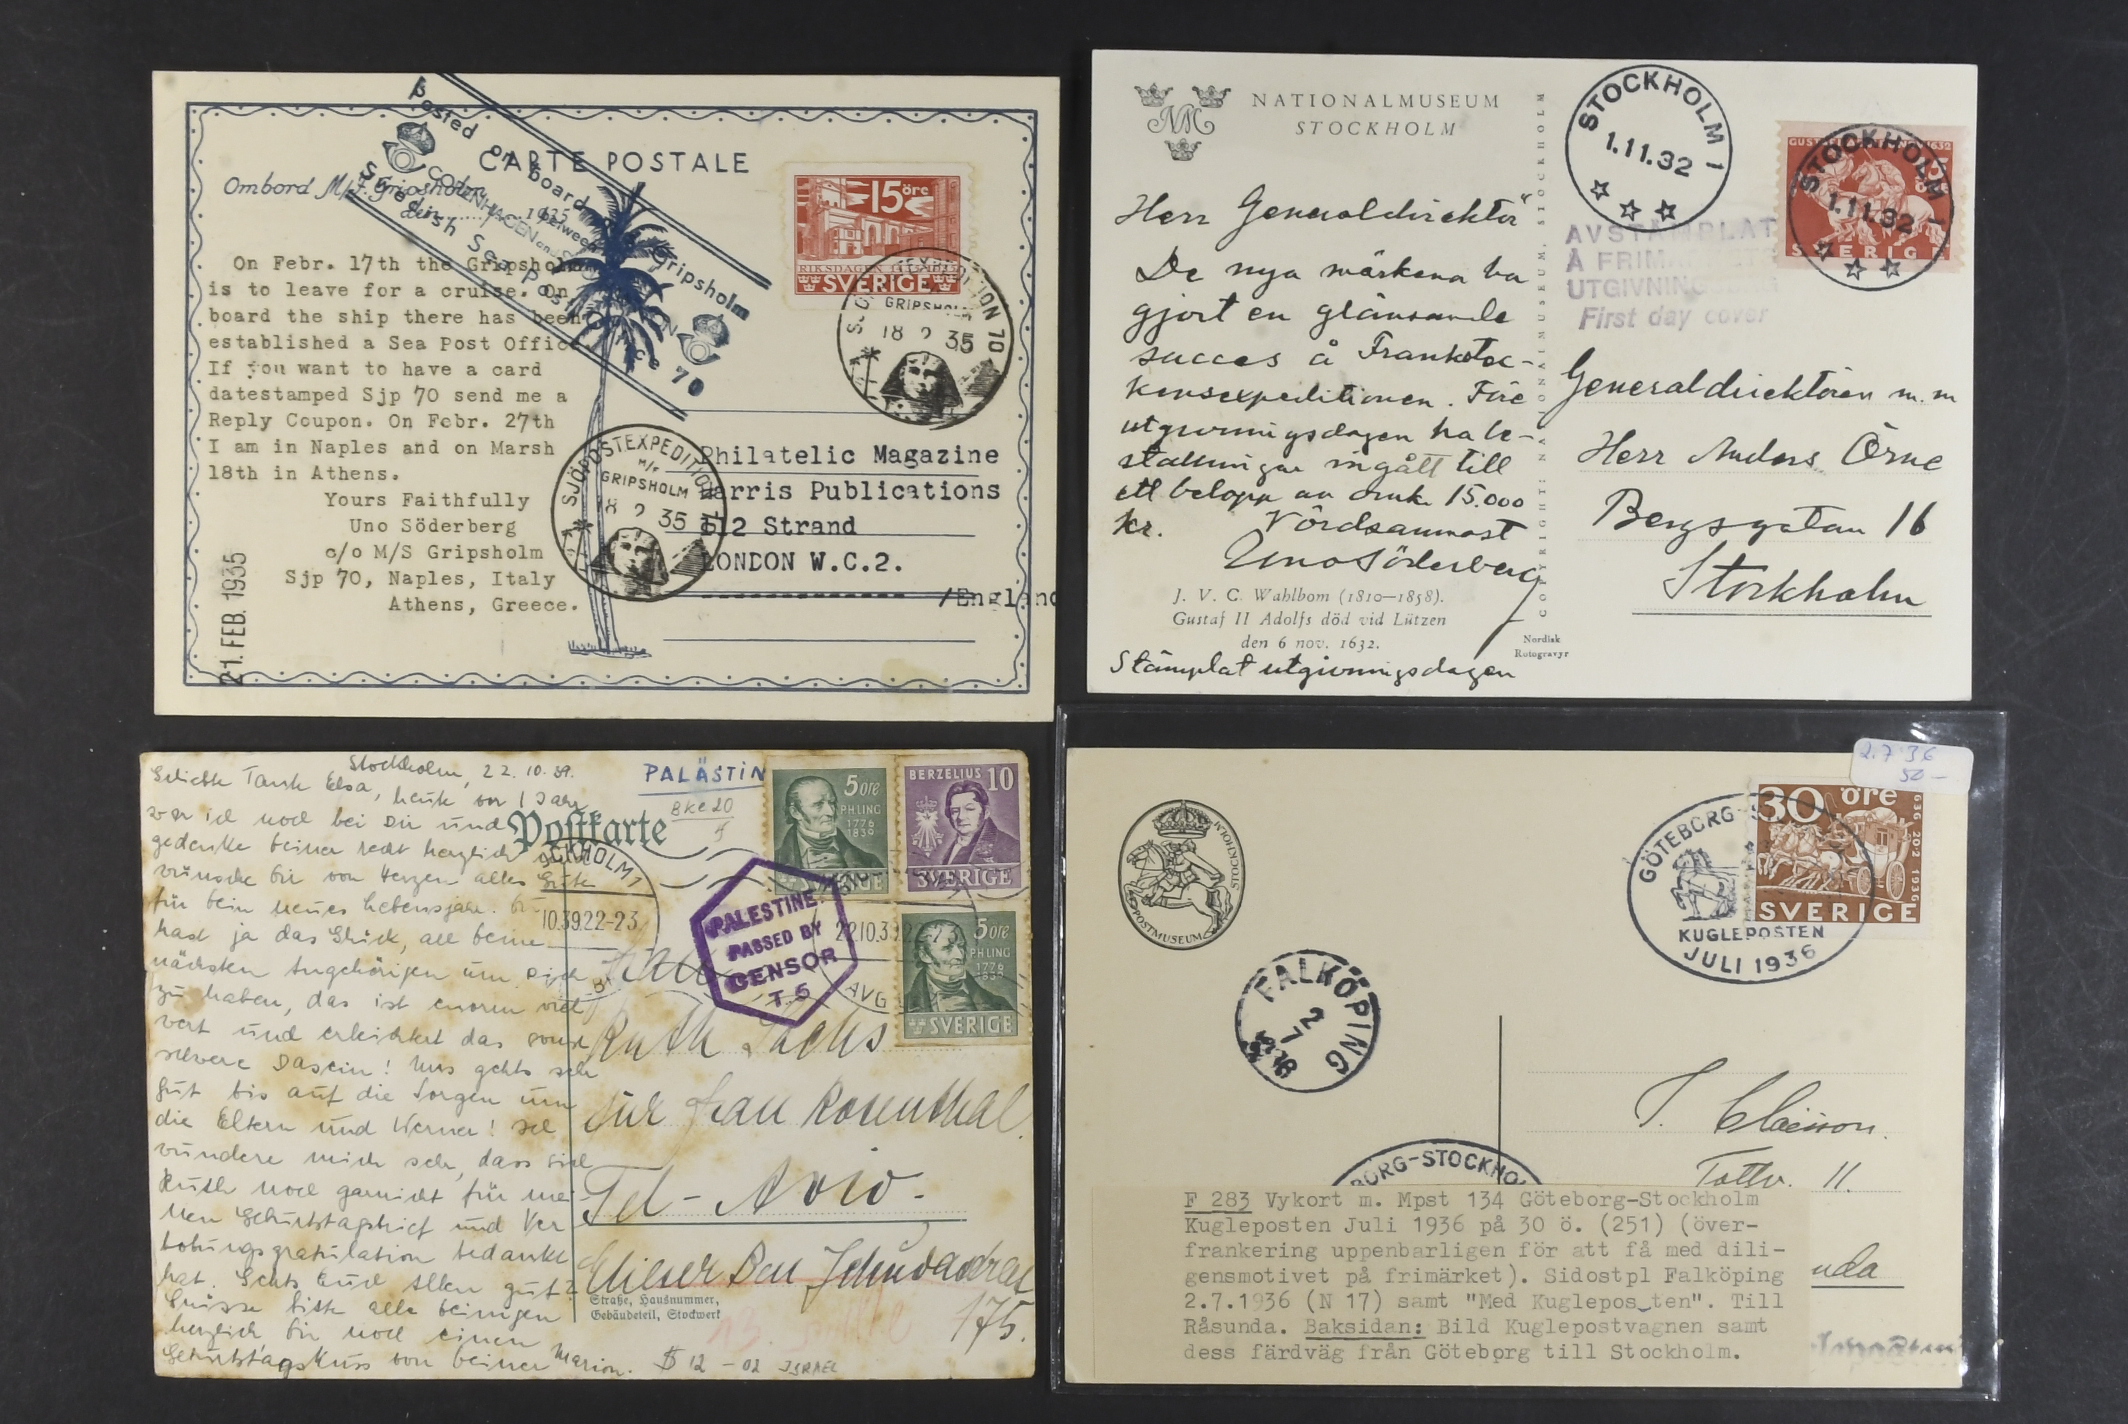 CARTE POSTALE
Ombord M/S Gripsholm
den 1935
posted on board m/s Gripsholm
between
COPENHAGEN and
Swedish Sea Post Office 70
15 öre
RIKSDAGEN
SVERIGE
SJÖPOSTEXPEDITION 70
GRIPSHOLM
18 2 35
On Febr. 17th the Gripsholm
is to leave for a cruise. On
board the ship there has been
established a Sea Post Office
If you want to have a card
datestamped Sjp 70 send me a
Reply Coupon. On Febr. 27th
I am in Naples and on Marsh
18th in Athens.
Yours Faithfully
Uno Söderberg
c/o M/S Gripsholm
Sjp 70, Naples, Italy
Athens, Greece.
21. FEB. 1935
SJÖPOSTEXPEDITION
M/S
GRIPSHOLM
18 2 35
Philatelic Magazine
Harris Publications
112 Strand
LONDON W.C.2.
/England
NM
NATIONALMUSEUM
STOCKHOLM
STOCKHOLM 1
1.11.32
SVERIGE
STOCKHOLM 1
1.11.32
AVSTÄMPLAT
Å FRIMÄRKETS
UTGIVNINGSDAG
First day cover
Herr Generaldirektör
De nya märkena ha
gjort en glänsande
succes å Frankotec-
kensexpeditionen. Före
utgivningsdagen ha be-
ställningar ingått till
ett belopp av cirka 15.000
kr. Vördsammast
Uno Söderberg
J. V. C. Wahlbom (1810—1858).
Gustaf II Adolfs död vid Lützen
den 6 nov. 1632.
Nordisk
Rotogravyr
Stämplat utgivningsdagen
COPYRIGHT: NATIONALMUSEUM, STOCKHOLM
Generaldirektören m.m
Herr Anders Örne
Bergsgatan 16
Stockholm
Stockholm, 22.10.39.
Geliebte Tante Elsa, heute vor 1 Jahr
war ich noch bei Dir und
gedenke Deiner recht herzlich
wünsche Dir von Herzen alles Gute
für Dein neues Lebensjahr. Du
hast ja das Glück, all Deine
nächsten Angehörigen um Dich
zu haben, das ist enorm viel
wert und erleichtert das sonst
schwere Dasein! Uns gehts sehr
gut bis auf die Sorgen um
die Eltern und Werner! Ich
wundere mich sehr, dass sich
Ruth noch garnicht für mei-
nen Geburtstagsbrief und Ver
lobungsgratulation bedankt
hat. Gehts Euch allen gut?
Grüsse bitte alle Deinigen
herzlich Dir noch einen
Geburtstagskuss von Deiner Marion.
PALÄSTIN
Bke 20
Postkarte
5 öre
PH LING
1776
1839
SVERIGE
BERZELIUS 10
SVERIGE
5 öre
PH LING
1776
1839
SVERIGE
STOCKHOLM 1
10.39.22-23
22.10.39
AVG
PALESTINE
PASSED BY
CENSOR
T. 5
Frau
Ruth Sachs
für Frau Rosenthal.
Tel-Aviv.
Elieser Ben Jehudastraat
175.
Straße, Hausnummer,
Gebäudeteil, Stockwerk
$ 12 - 02 ISRAEL
2.7'36
50-
POSTMUSEUM STOCKHOLM
30 öre
1636 202 1936
SVERIGE
GÖTEBORG-S
KUGLEPOSTEN
JULI 1936
FALKÖPING
2
7
BORG-STOCKHO
T. Claëson.
Tottv. 11.
unda
F 283 Vykort m. Mpst 134 Göteborg-Stockholm
Kugleposten Juli 1936 på 30 ö. (251) (över-
frankering uppenbarligen för att få med dili-
gensmotivet på frimärket). Sidostpl Falköping
2.7.1936 (N 17) samt "Med Kuglepos_ten". Till
Råsunda. Baksidan: Bild Kuglepostvagnen samt
dess färdväg från Göteborg till Stockholm.